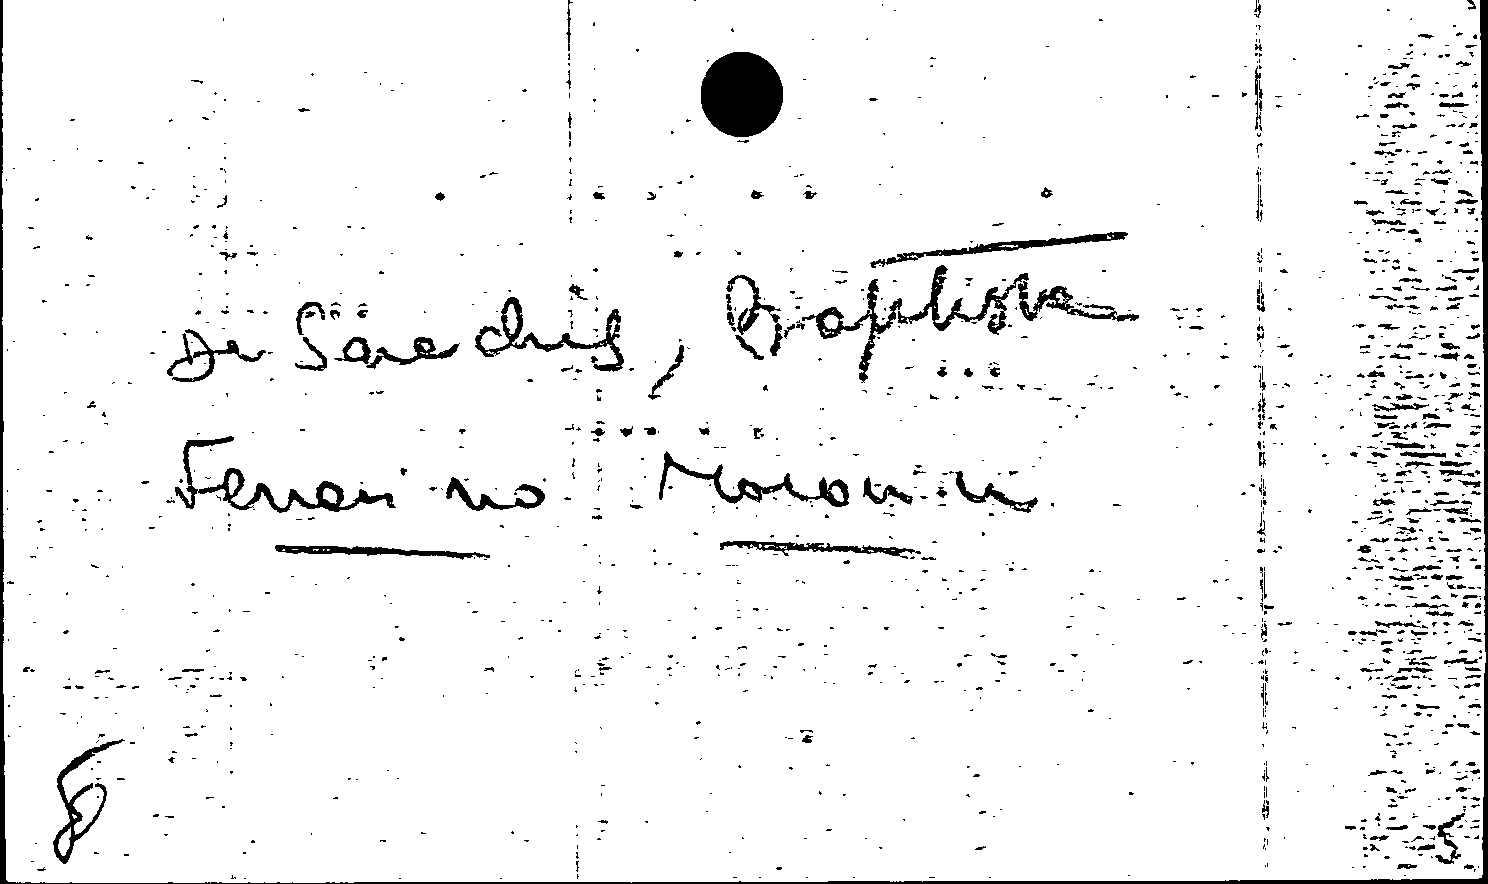 De Sanctis, Baptista
Ferrarino Moranin